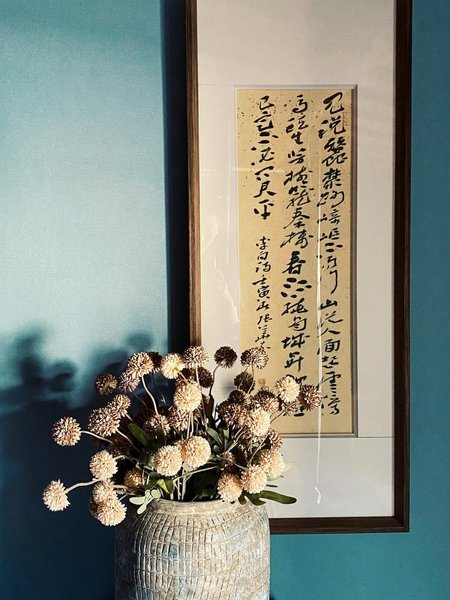 見說蠶叢路崎嶇不易行山從人面起雲傍
馬頭生芳樹籠秦棧春流遶蜀城升沉應
已定不必問君平
李白詩壬寅